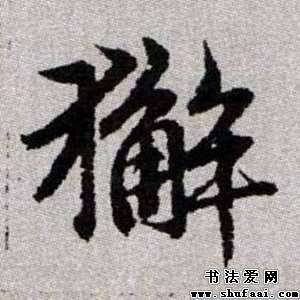 獬
书法爱网
www.shufaai.com